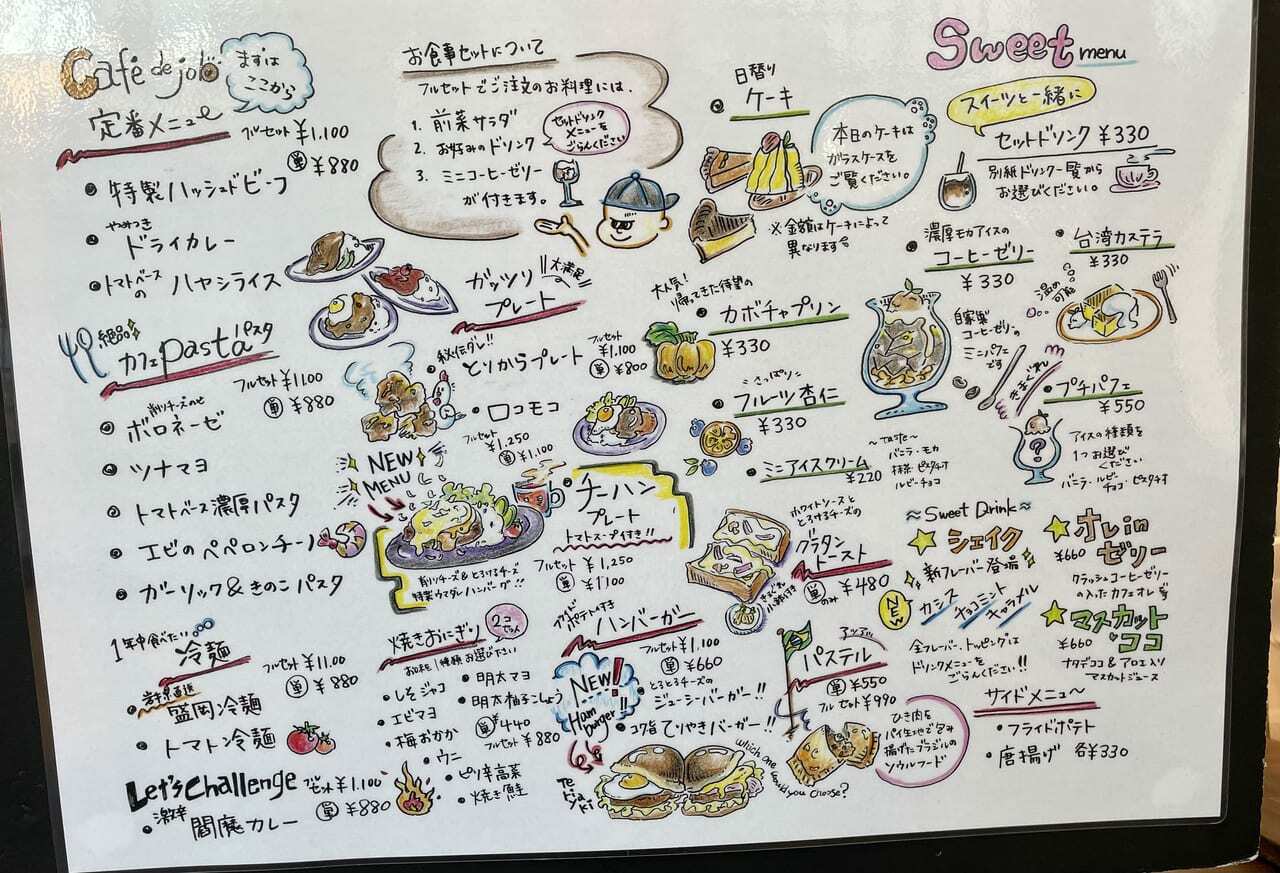 Café de job
まずは
ここから
定番メニュー
フルセット ¥1,100
単 ¥880
特製ハッシュドビーフ
やみつき
ドライカレー
トマトベースの
ハヤシライス
絶品
カフェpastaパスタ
フルセット ¥1100
単 ¥880
削りチーズのせ
ボロネーゼ
ツナマヨ
トマトベース濃厚パスタ
エビのペペロンチーノ
ガーリック&きのこパスタ
1年中食べたい
冷麺
フルセット ¥1100
単 ¥880
盛岡冷麺
トマトン冷麺
Let's Challenge
フルセット ¥1,100
単 ¥880
激辛
閻魔カレー
お食事セットについて
フルセットでご注文のお料理には、
1. 前菜サラダ
2. お好みのドリンク
3. ミニコーヒーゼリー
が付きます。
セットドリンク
メニューを
ごらんください
ガッツリ
プレート
大満足
秘伝ダレ!!
とりからプレート
フルセット
¥1,100
単 ¥800
ロコモコ
フルセット
¥1,250
単 ¥1,100
NEW
MENU
チーハン
プレート
トマトスープ付き!!
削りチーズ&とろけるチーズ
特製ウマダレハンバーグ!!
フルセット ¥1,250
単 ¥1100
焼きおにぎり
2コ
ちゃん
お好きな1種類お選びください
しそジャコ
エビマヨ
梅おかか
ウニ
ピリ辛高菜
焼き鮭
明太マヨ
明太柚子こしょう
単 ¥440
フルセット ¥880
ポテト付き
ハンバーガー
フルセット ¥1,100
単 ¥660
NEW!
Hamburger
とろとろチーズの
ジューシーバーガー!!
コク旨てりやきバーガー!!
Teriyaki
which one would you choose?
日替り
ケーキ
本日のケーキは
ガラスケースを
ご覧ください。
※金額はケーキによって
異なります
大人気!
帰ってきた待望の
カボチャプリン
¥330
さっぱり
フルーツ杏仁
¥330
ミニアイスクリーム
¥220
〜taste〜
バニラ・モカ
抹茶・ピスタチオ
ルビーチョコ
ホワイトソースと
とろけるチーズの
グラタン
トースト
単のみ ¥480
アツアツ
パステル
単 ¥550
フルセット ¥990
ひき肉を
パイ生地で包み
揚げたブラジルの
ソウルフード
Sweet menu
スイーツと一緒に
セットドリンク ¥330
別紙ドリンク一覧から
お選びください。
濃厚モカアイスの
コーヒーゼリー
¥330
自家製
コーヒーゼリーの
ミニパフェ
です
台湾カステラ
¥330
温め
可能
プチパフェ
¥550
アイスの種類を
1つお選び
ください
バニラ・ルビー
チョコ・ピスタチオ
≈Sweet Drink≈
シェイク
新フレーバー登場
NEW
カシス
チョコミント
キャラメル
全フレーバー、トッピングは
ドリンクメニューを
ごらんください!!
オレin
ゼリー
¥660
クラッシュコーヒーゼリー
の入ったカフェオレ
マスカット
ココ
¥660
ナタデココ&アロエ入り
マスカットジュース
サイドメニュ〜
フライドポテト
唐揚げ 各¥330